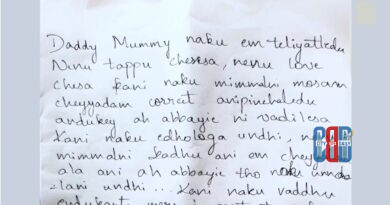 Daddy Mummy naku em teliyatledu
Nenu tappu chesesa, nenu love
chesa kani naku mimmalni mosam
cheyyadam correct anipinchaledu
andukey ah abbayie ni vadilesa
Kani naku edhologa undhi,
mimmalni kadhu ani em chey
ala ani ah abbayie tho naku unnda
-lani undhi ... Kani naku vaddhu